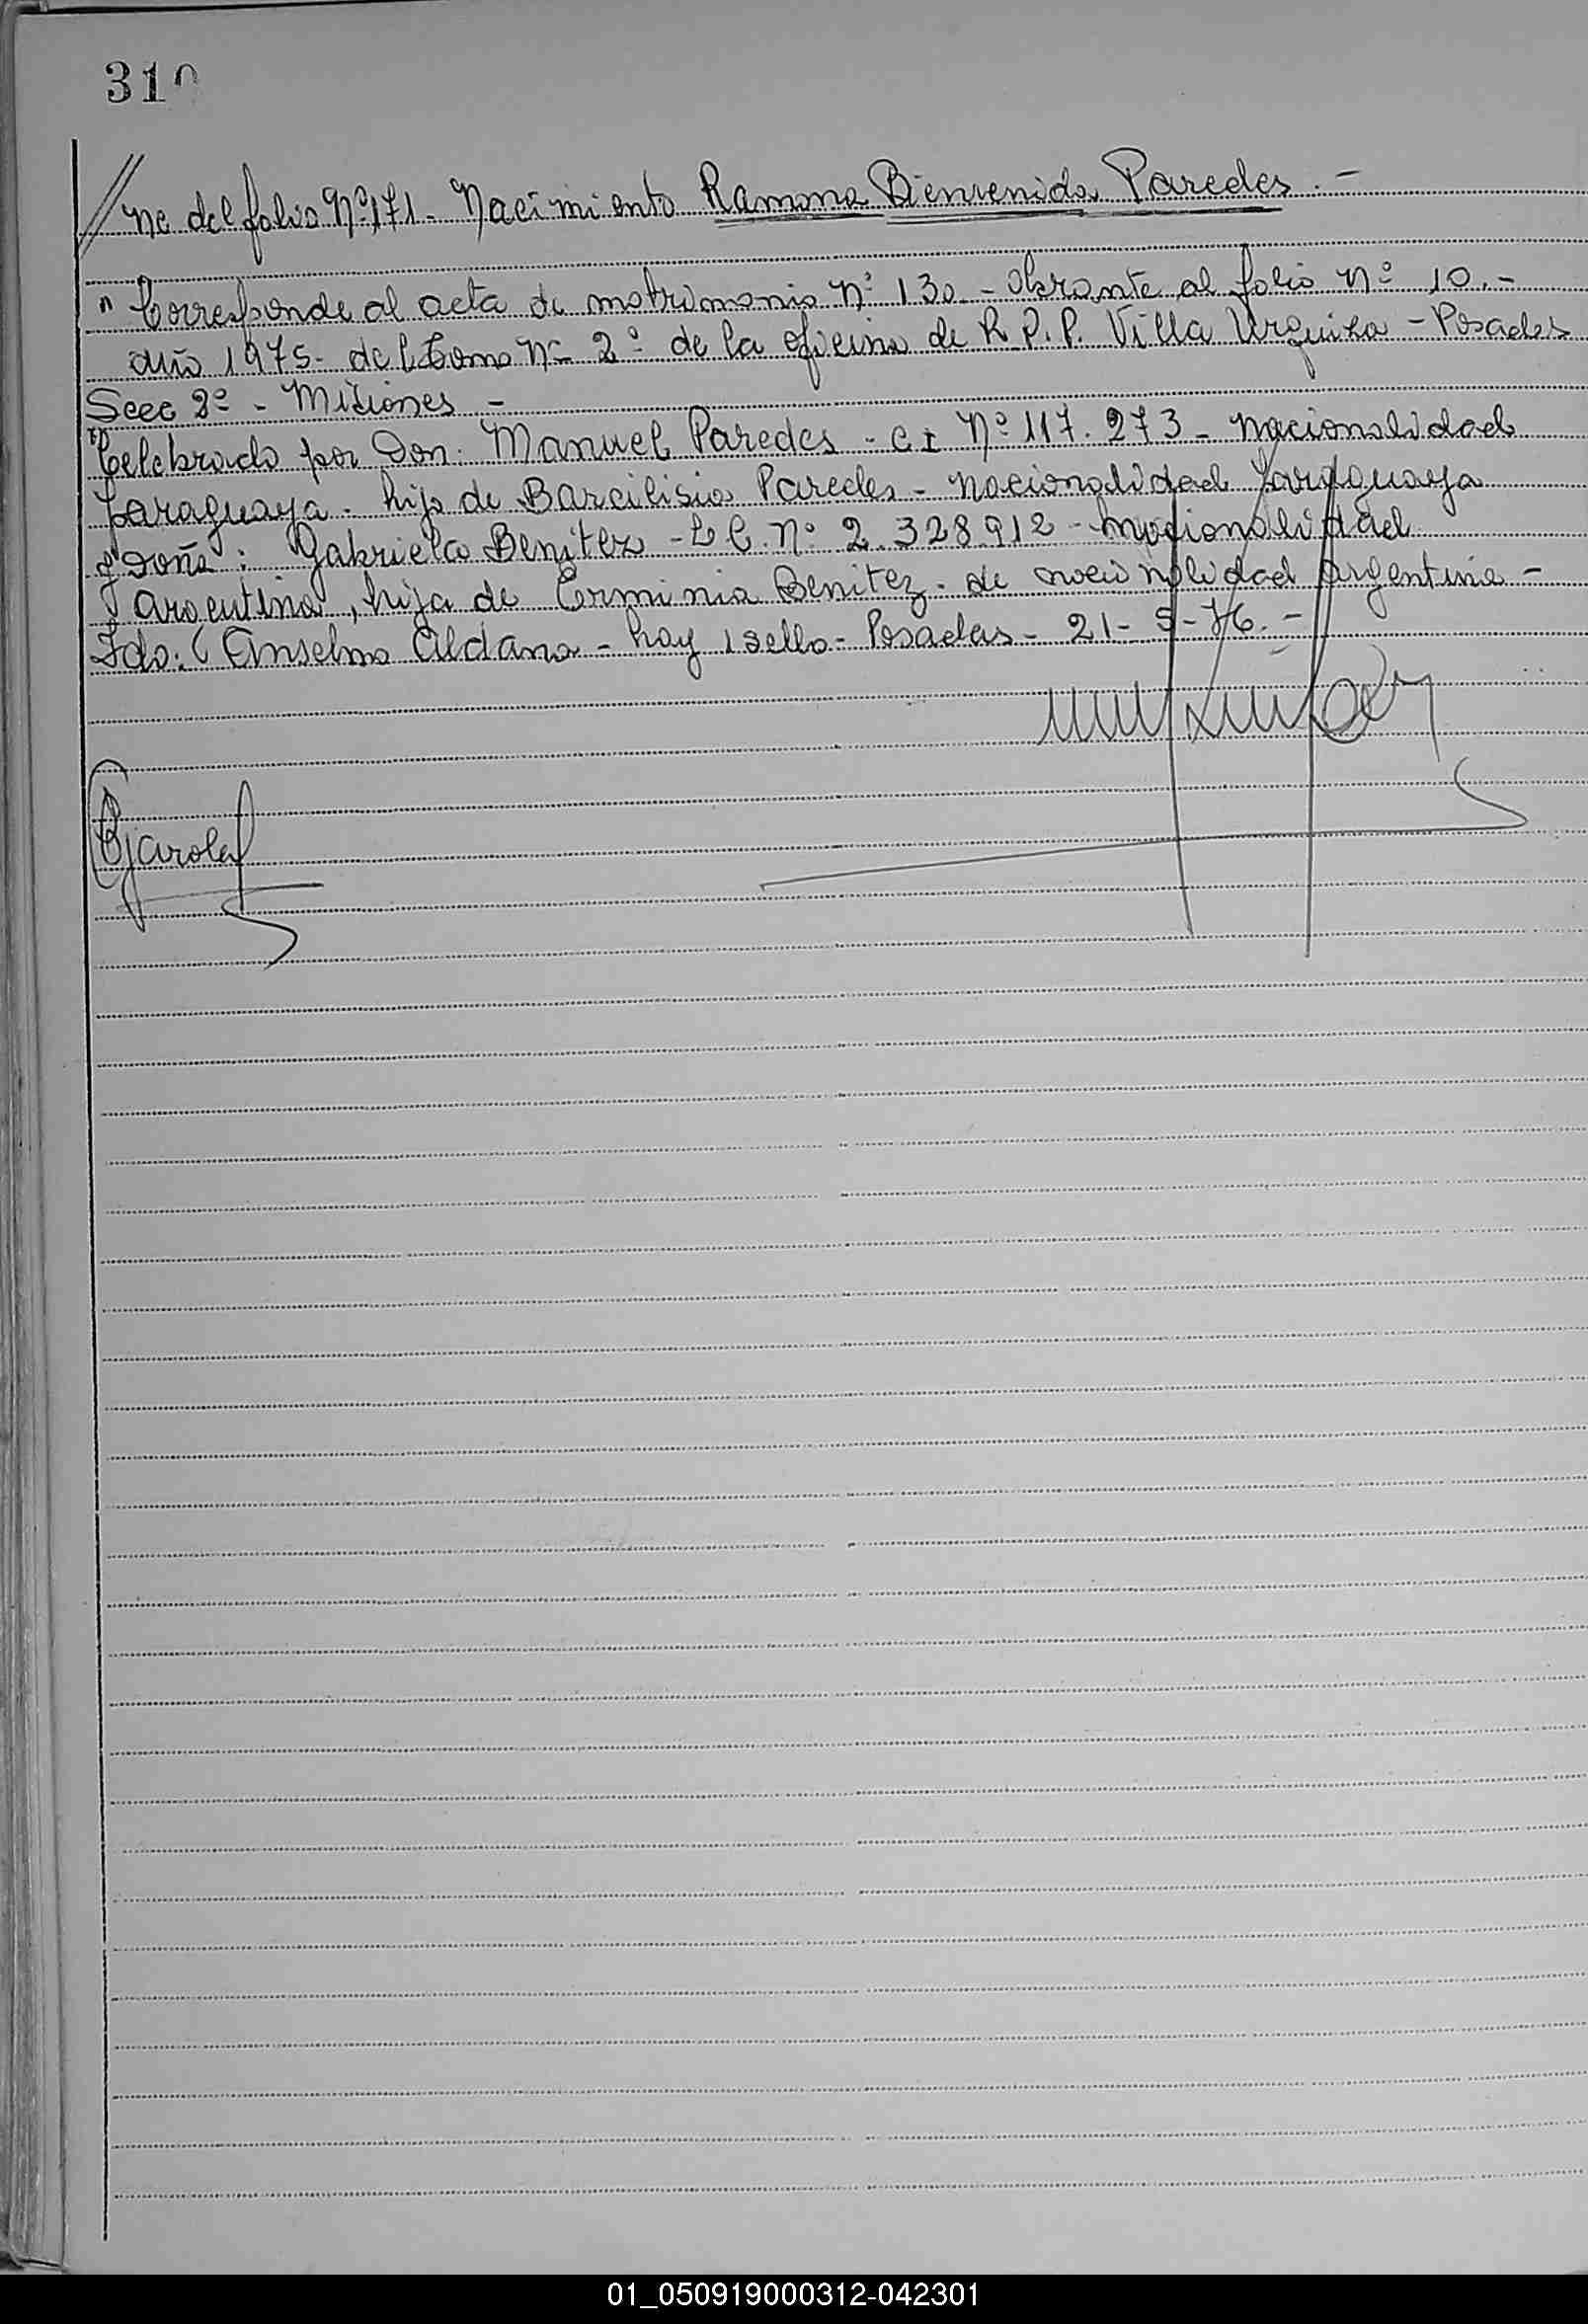 310
//ne del folio Nº 171 - Nacimiento Ramona Bienvenida Paredes . -
" Corresponde al acta de matrimonio Nº 130 - Obrante al folio Nº 10. -
año 1975 - del tomo Nº 2º de la oficina de R.P.P. Villa Urquiza - Posadas
Secc 2º - Misiones -
Celebrado por Don: Manuel Paredes - C I Nº 117.273 - Nacionalidad
paraguaya - hijo de Barcilisia Paredes - nacionalidad paraguaya
y Doña : Gabriela Benitez - L C. Nº 2.328.912 - nacionalidad
argentina, hija de Erminia Benitez - de nacionalidad argentina -
Fdo: ( Anselmo Aldana - hay 1 sello - Posadas - 21 - 5 - 76. -
01_050919000312-042301